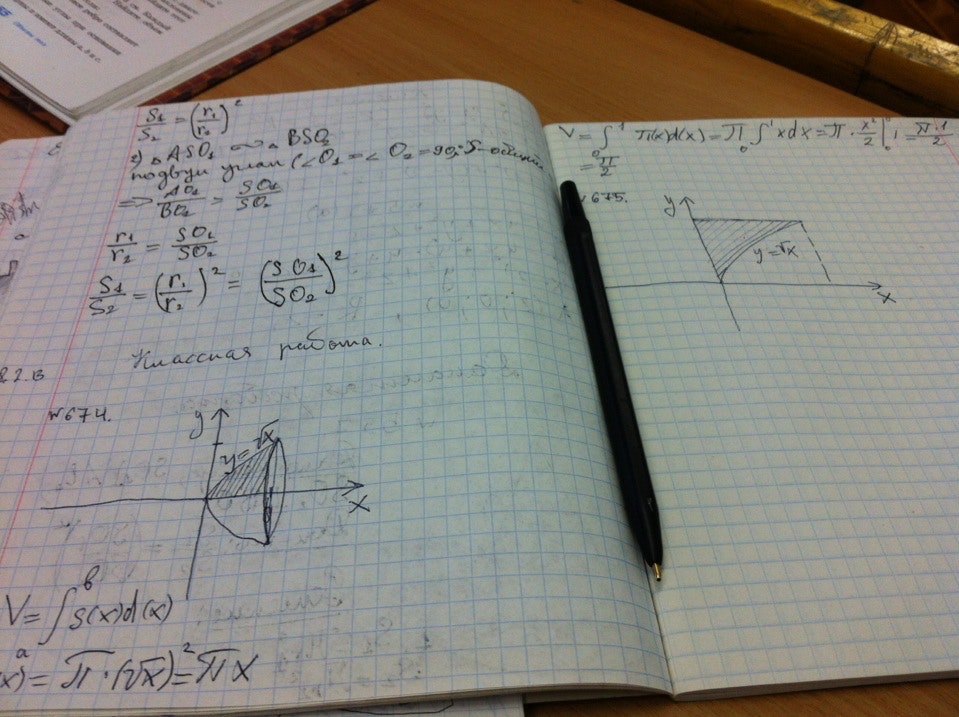 S₁/S₂ = (r₁/r₂)²
2) △ASO₁ ∾ △BSO₂
по двум углам (∠O₁ = ∠O₂ = 90°, S-общий)
=> AO₁/BO₂ = SO₁/SO₂
r₁/r₂ = SO₁/SO₂
S₁/S₂ = (r₁/r₂)² = (SO₁/SO₂)²
Классная работа.
№674.
y
y=√x
x
V = ∫ₐᵇ S(x)d(x)
(x) = π·(√x)² = πx
V = ∫₀¹ π(x)d(x) = π ₀∫¹ xdx = π · x²/2 |₀¹ = π·1/2
= π/2
№675.
y
y=√x
x